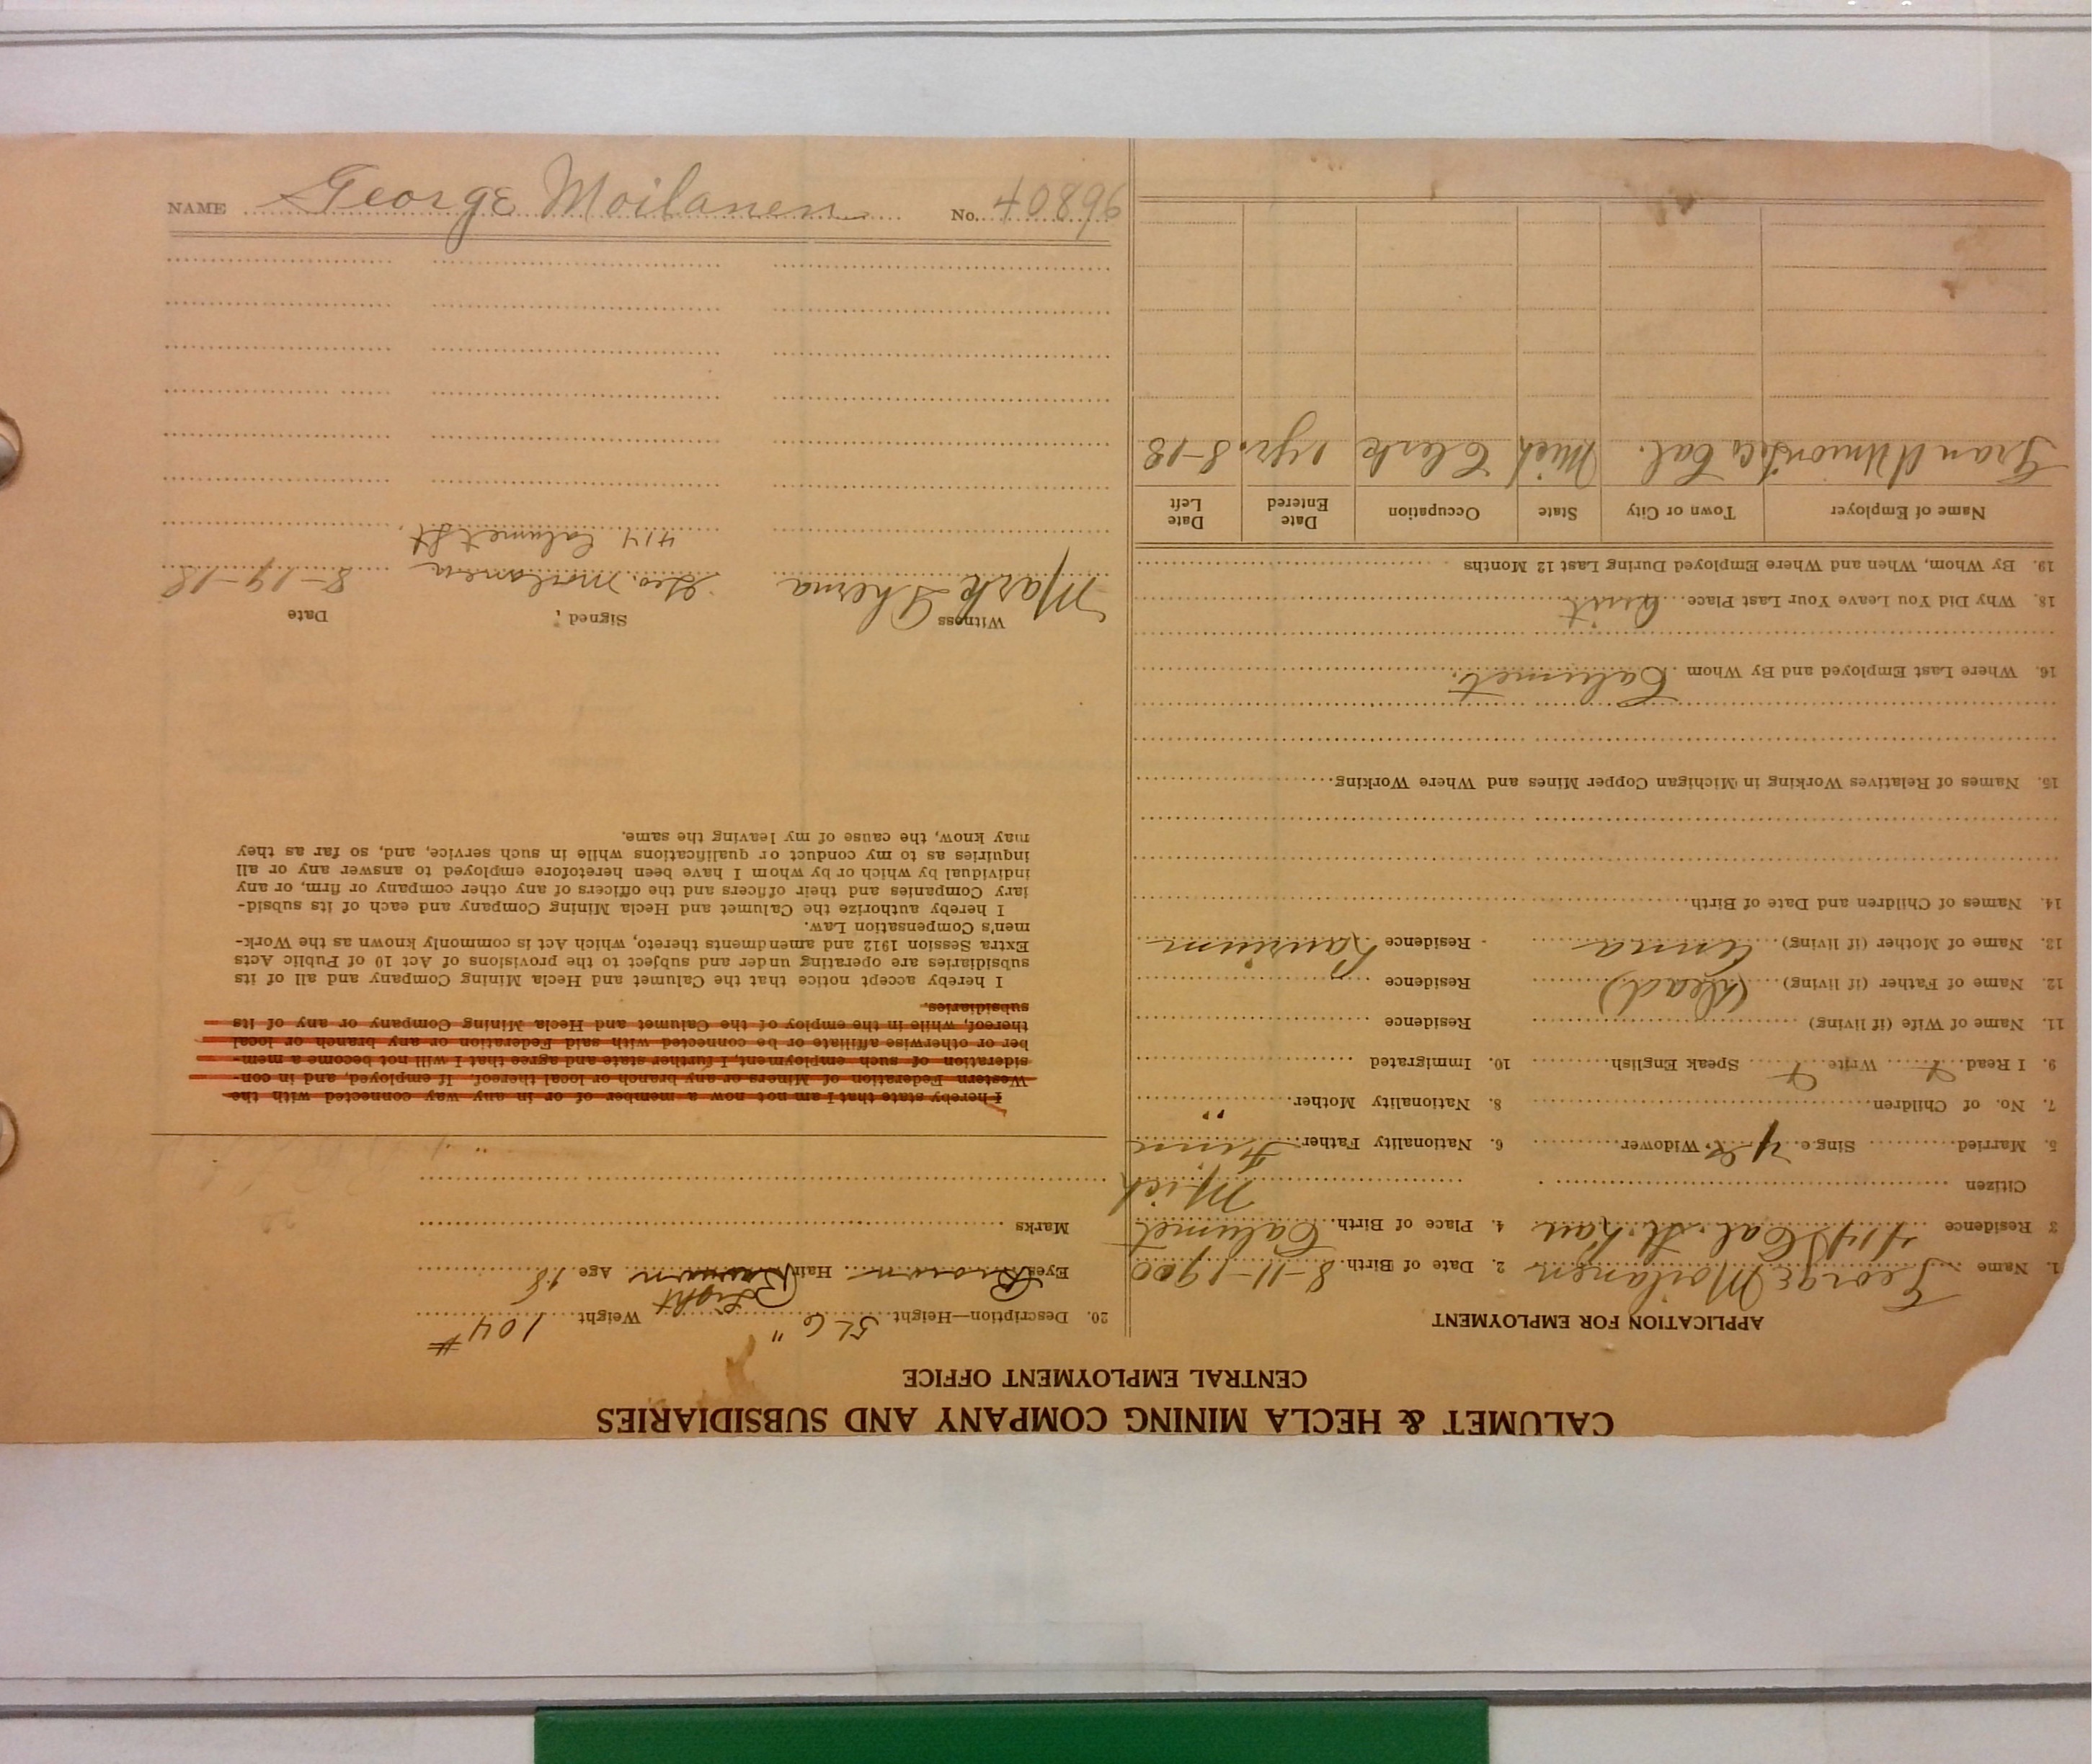 CALUMET & HECLA MINING COMPANY AND SUBSIDIARIES
CENTRAL EMPLOYMENT OFFICE
APPLICATION FOR EMPLOYMENT
1. Name George Moilanen 2. Date of Birth. 8-11-1900
3 Residence 414 Cal. St. Lau 4. Place of Birth. Calumet
Citizen Mich
5. Married Sing.e Widower 6. Nationality Father Finn
7. No. of Children 8. Nationality Mother. " "
9. I Read Write Speak English 10. Immigrated
11. Name of Wife (if living) Residence
12. Name of Father (if living) (Dead) Residence
13. Name of Mother (if living) Anna Residence Laurium
14. Names of Children and Date of Birth.
15. Names of Relatives Working in Michigan Copper Mines and Where Working.
16. Where Last Employed and By Whom Calumet.
18. Why Did You Leave Your Last Place. Quit
19. By Whom, When and Where Employed During Last 12 Months
Name of Employer Town or City State Occupation Date Entered Date Left
Grand Union Cal. Mich Clerk 1 yr. 8-18
20. Description—Height. 5-6" Weight 104 #
Light
Eyes Brown Hair Brown Age. 18
Marks
I hereby state that I am not now a member of or in any way connected with the
Western Federation of Miners or any branch or local thereof. If employed, and in con-
sideration of such employment, I further state and agree that I will not become a mem-
ber or otherwise affiliate or be connected with said Federation or any branch or local
thereof, while in the employ of the Calumet and Hecla Mining Company or any of its
subsidiaries.
I hereby accept notice that the Calumet and Hecla Mining Company and all of its
subsidiaries are operating under and subject to the provisions of Act 10 of Public Acts
Extra Session 1912 and amendments thereto, which Act is commonly known as the Work-
men's Compensation Law.
I hereby authorize the Calumet and Hecla Mining Company and each of its subsid-
iary Companies and their officers and the officers of any other company or firm, or any
individual by which or by whom I have been heretofore employed to answer any or all
inquiries as to my conduct or qualifications while in such service, and, so far as they
may know, the cause of my leaving the same.
Witness Signed; Date
Mark Geo. Moilanen 8-19-18
414 Calumet St.
NAME George Moilanen No. 40896